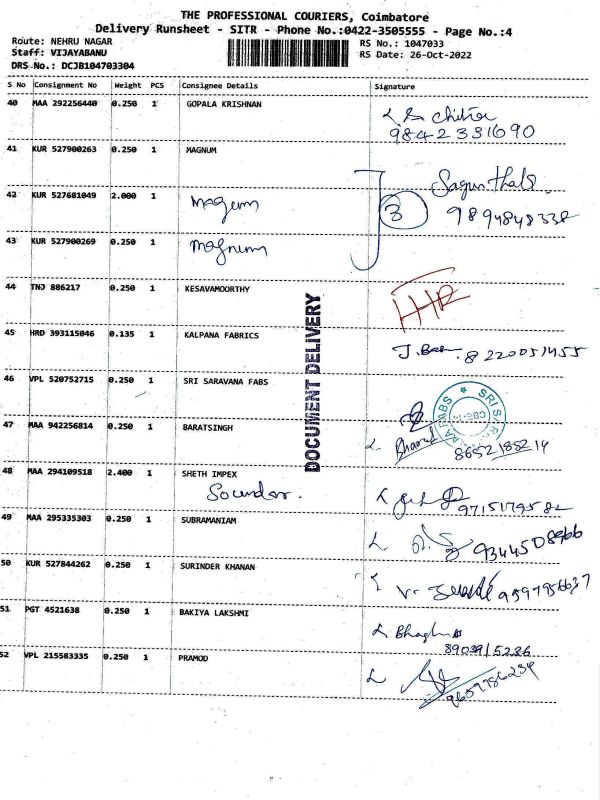 THE PROFESSIONAL COURIERS, Coimbatore
Delivery Runsheet - SITR - Phone No.:0422-3505555 - Page No.:4
Route: NEHRU NAGAR
RS No.: 1047033
Staff: VIJAYABANU
RS Date: 26-Oct-2022
DRS No.: DCJB104703304
S No Consignment No Weight PCS Consignee Details Signature
40 MAA 292256440 0.250 1 GOPALA KRISHNAN
9842331690
41 KUR 527900263 0.250 1 MAGNUM
42 KUR 527681049 2.000 1 Magnum 3 9894848338
43 KUR 527900269 0.250 1 Magnum
44 TNJ 886217 0.250 1 KESAVAMOORTHY
45 HRD 393115046 0.135 1 KALPANA FABRICS
8220051455
46 VPL 520752715 0.250 1 SRI SARAVANA FABS
47 MAA 942256814 0.250 1 BARATSINGH
Bharat 8652188214
48 MAA 294109518 2.400 1 SHETH IMPEX
Soundar. 9715179582
49 MAA 295335303 0.250 1 SUBRAMANIAM
9344508966
50 KUR 527844262 0.250 1 SURINDER KHANAN
9597956637
51 PGT 4521638 0.250 1 BAKIYA LAKSHMI
8903915286
52 VPL 215583335 0.250 1 PRAMOD
9659786239
DOCUMENT DELIVERY